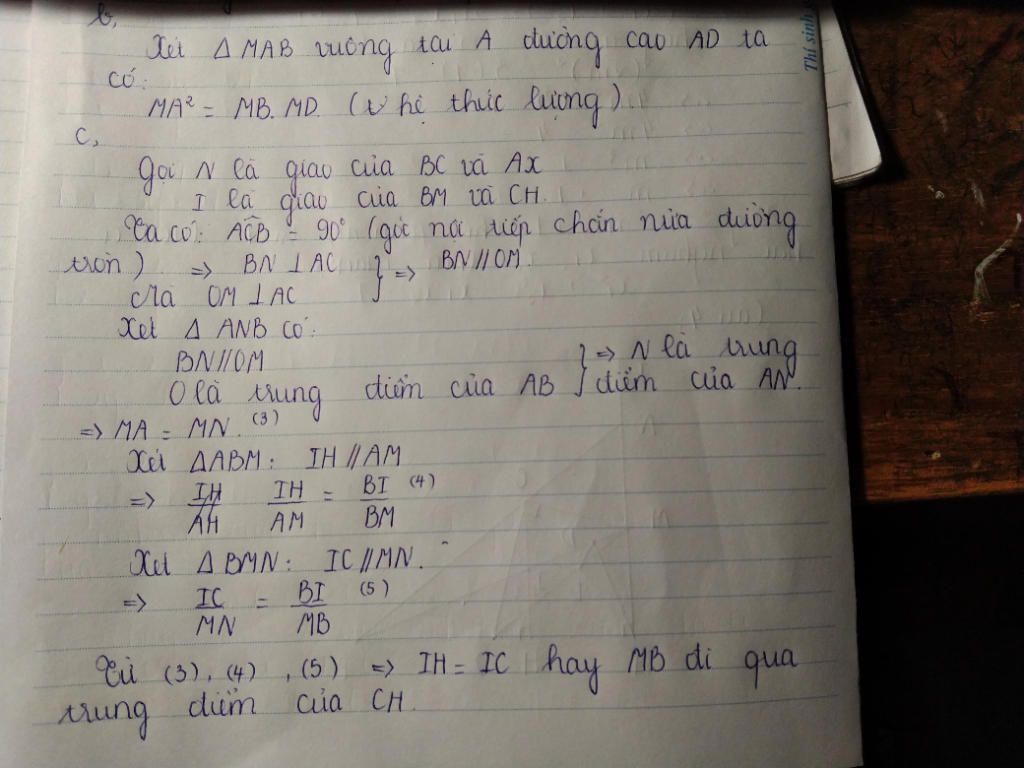 b,
Xét Δ MAB vuông tại A đường cao AD ta
có:
MA² = MB. MD. (từ hệ thức lượng)
c,
Gọi N là giao của BC và Ax
I là giao của BM và CH.
Ta có: AĈB = 90° (góc nội tiếp chắn nửa đường
tròn) => BN ⊥ AC } => BN // OM
Mà OM ⊥ AC
Xét Δ ANB có:
BN // OM
O là trung điểm của AB } => N là trung điểm của AN.
=> MA = MN. (3)
Xét ΔABM: IH // AM
=> IH/AH IH/AM = BI/BM (4)
Xét ΔBMN: IC // MN.
=> IC/MN = BI/MB (5)
Từ (3), (4), (5) => IH = IC hay MB đi qua
trung điểm của CH.
Thí sinh